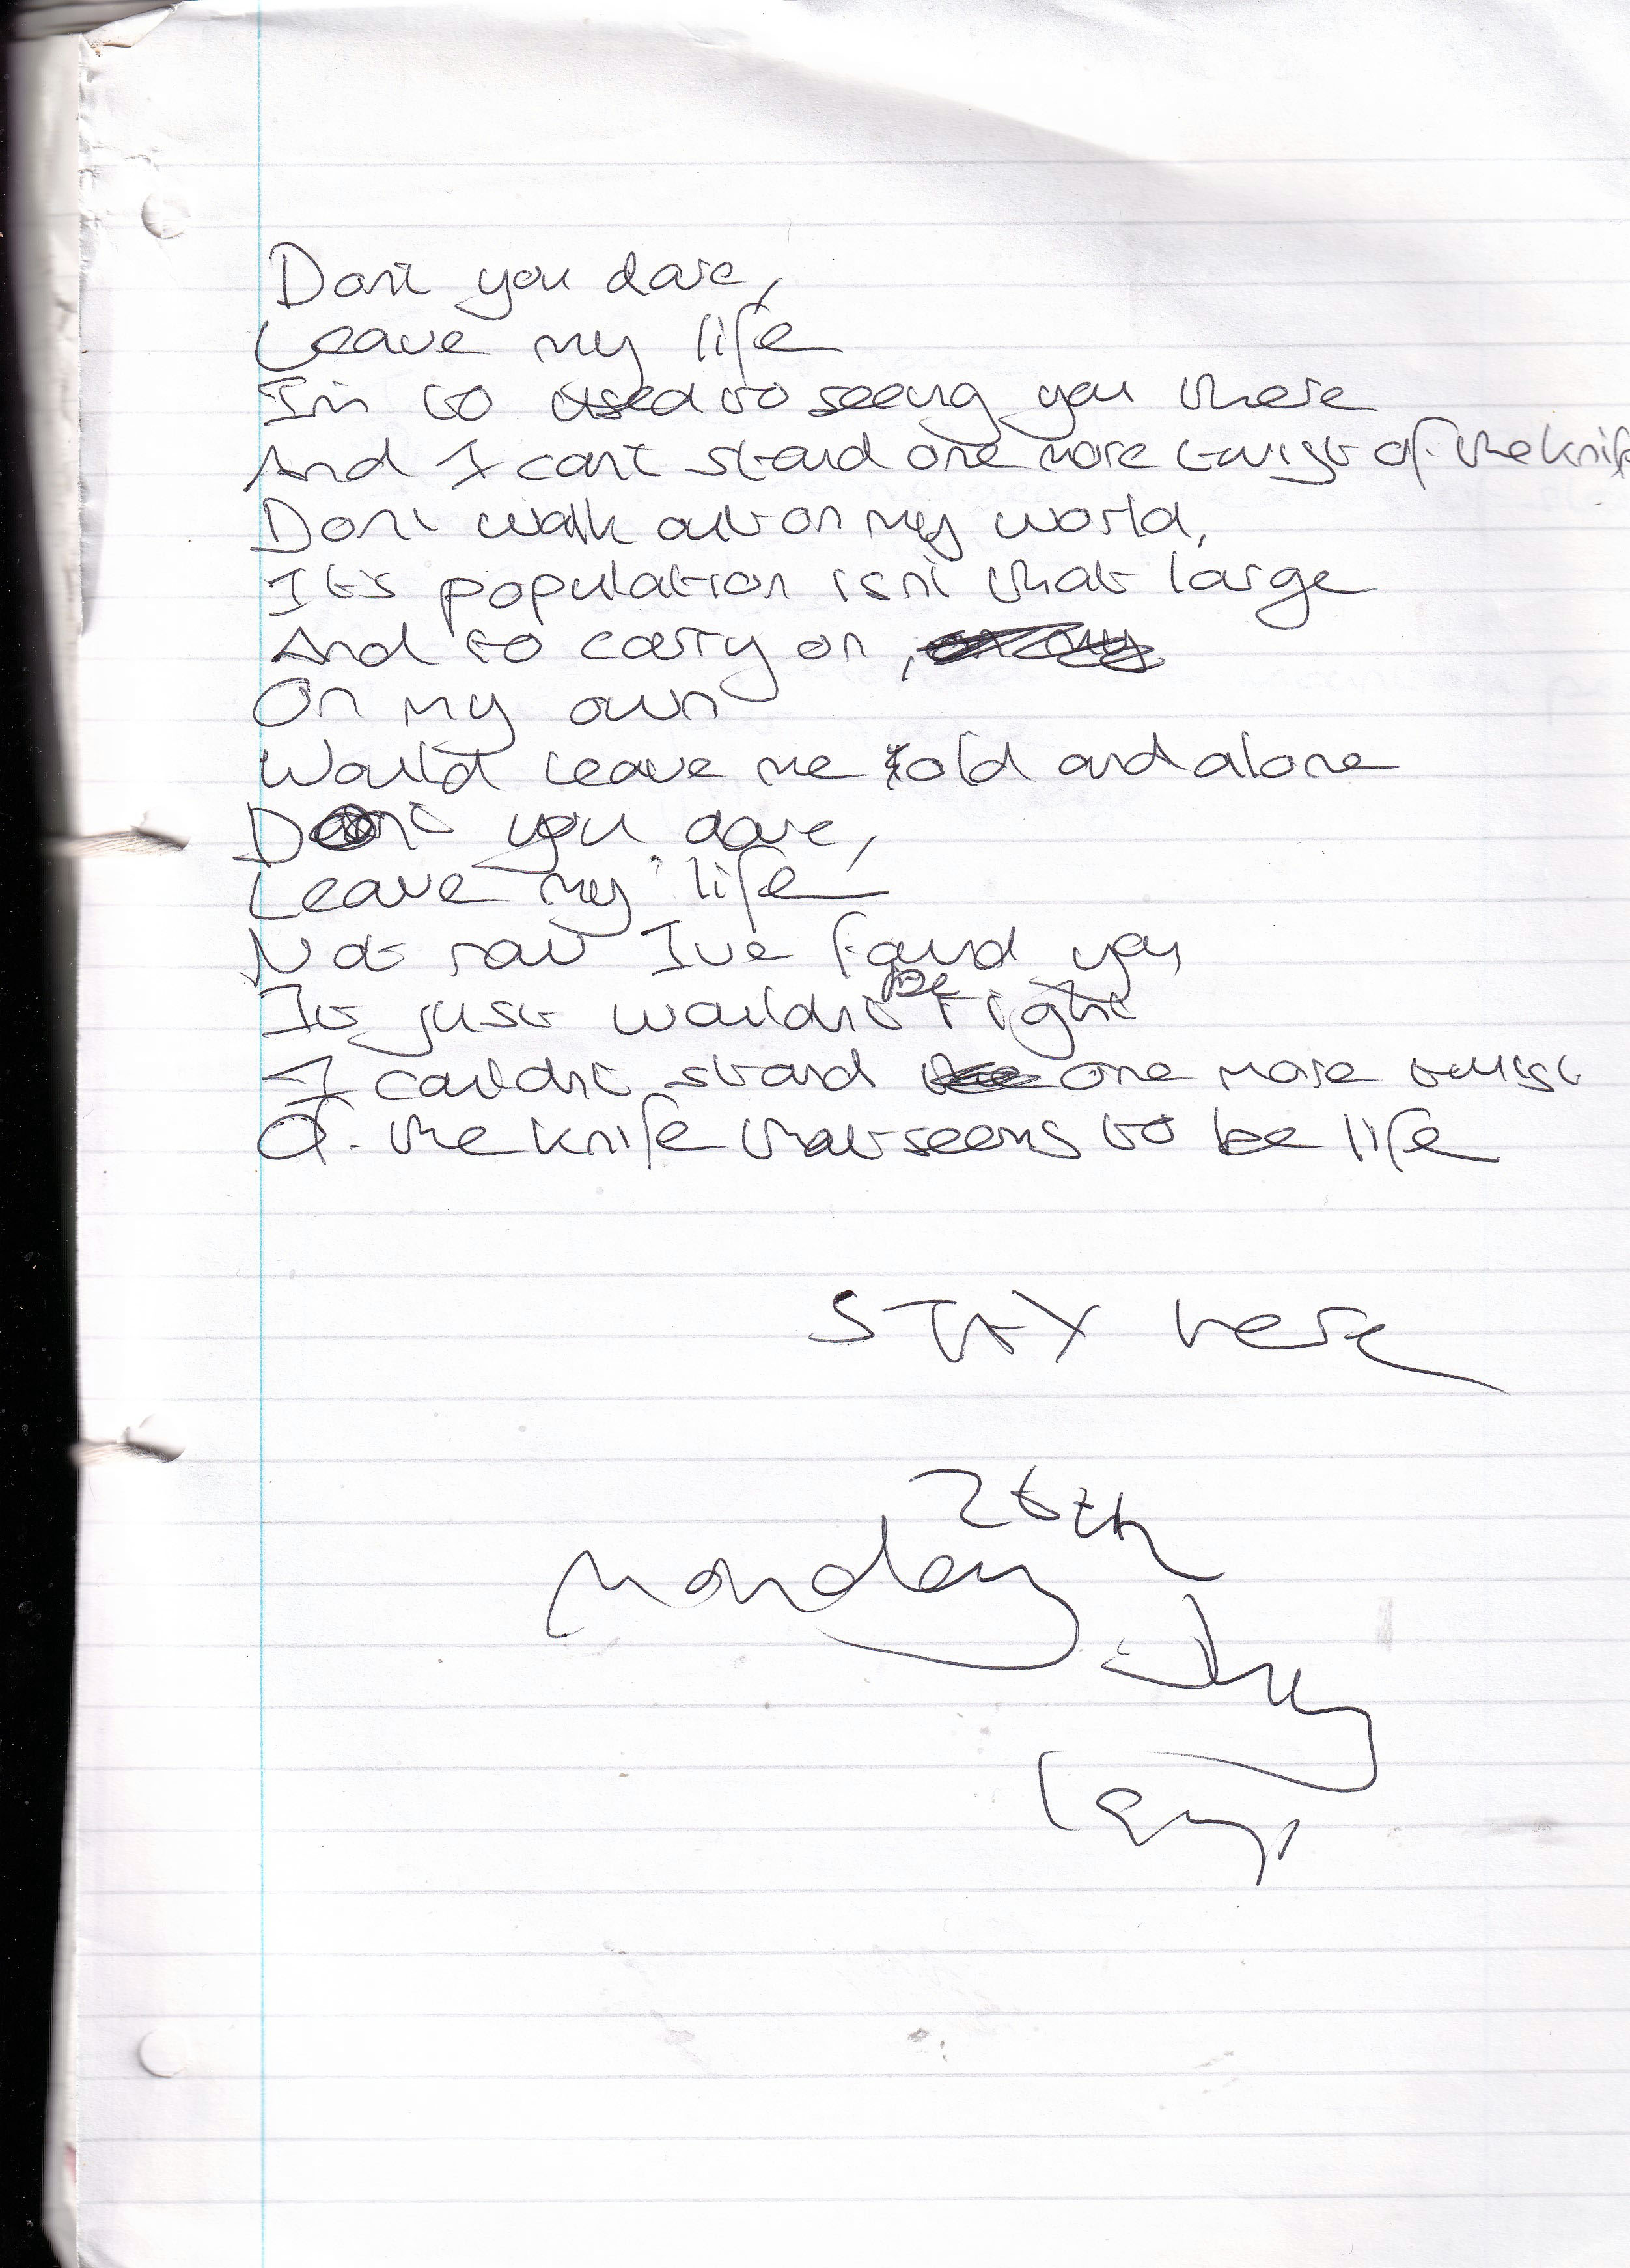 Don't you dare,
Leave my life
I'm to used to seeing you there
And I can't stand one more twist of the knife
Don't walk out on my world,
It's population isn't that large
And to carry on,
On my own
Would leave me old and alone
Don't you dare,
Leave my life
Not now I've found you
It just wouldn't be right
I couldn't stand one more twist
Of the knife that seems to be life
STAY here
26th
Monday